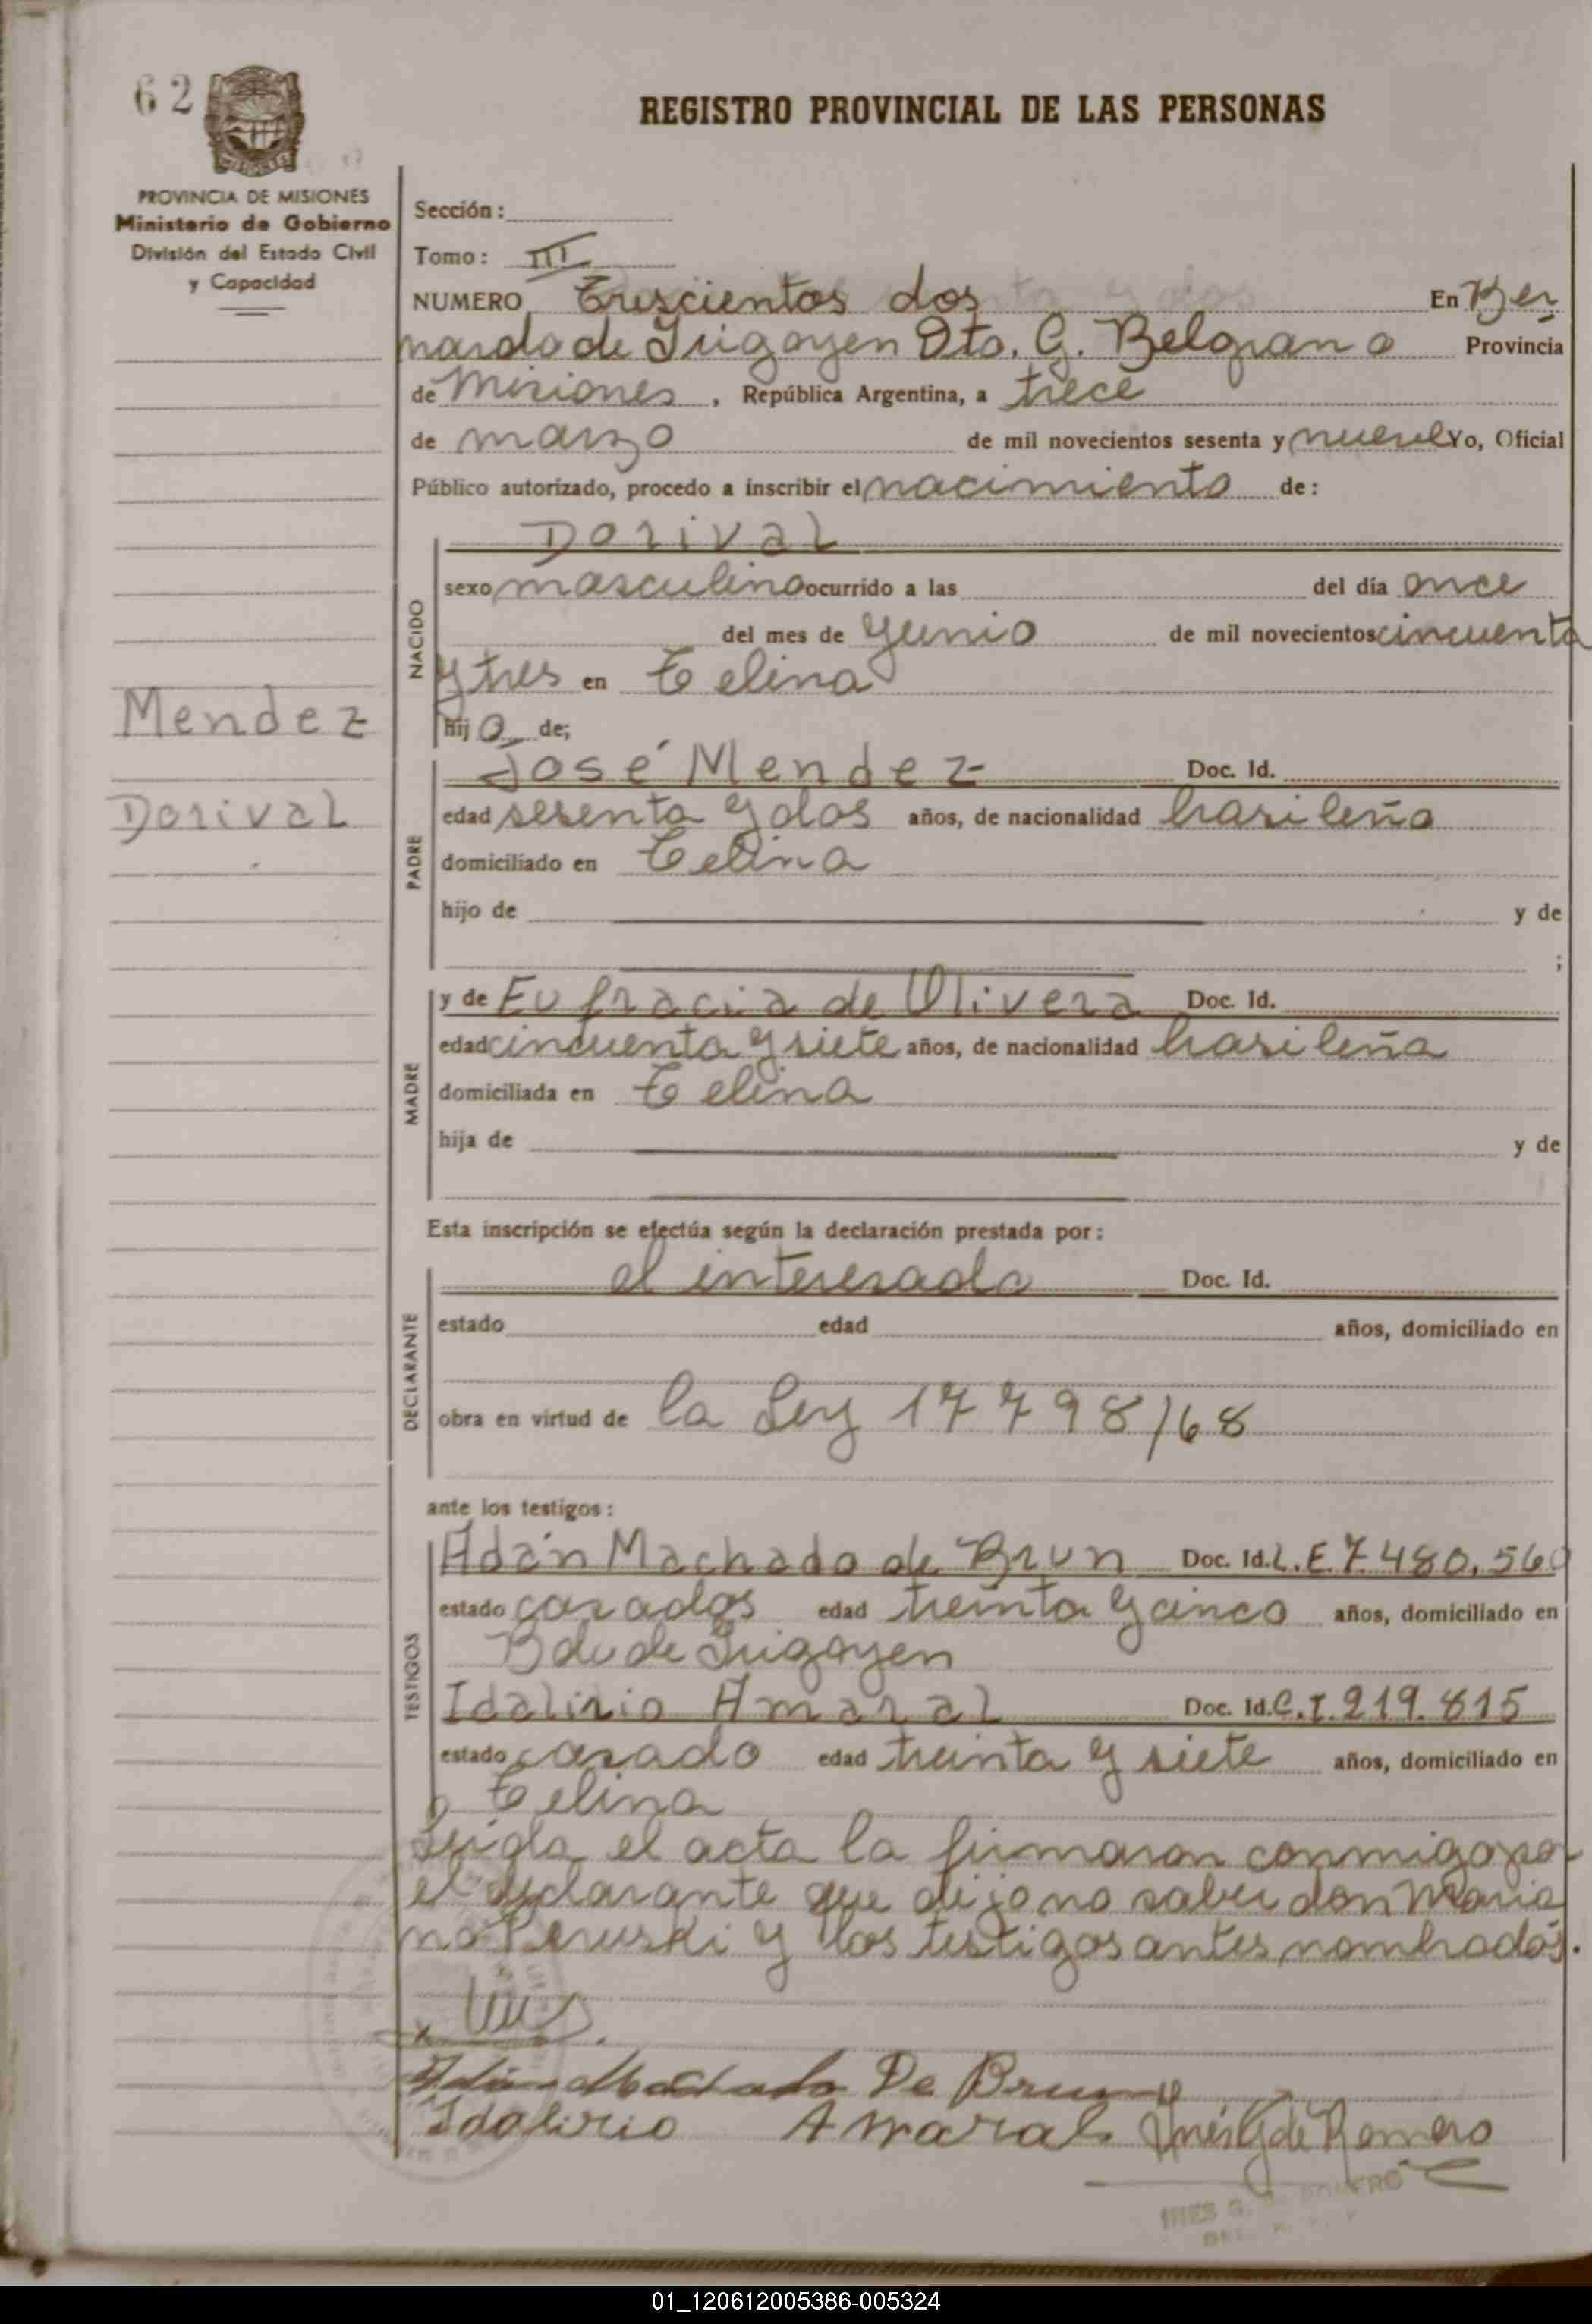 62
REGISTRO PROVINCIAL DE LAS PERSONAS
PROVINCIA DE MISIONES
Ministerio de Gobierno
División del Estado Civil
y Capacidad
Sección:
Tomo: III
NUMERO Trescientos dos En Ber
nardo de Irigoyen Dto. G. Belgrano Provincia
de Misiones, República Argentina, a trece
de marzo de mil novecientos sesenta y nueve Yo, Oficial
Público autorizado, procedo a inscribir el nacimiento de:
NACIDO
Dorival
sexo masculino ocurrido a las del día once
del mes de Junio de mil novecientos cincuenta
y tres en Celina
hijo de;
Mendez
Dorival
PADRE
José Mendez Doc. Id.
edad sesenta y dos años, de nacionalidad brasileña
domiciliado en Celina
hijo de y de
;
MADRE
y de Eufracia de Olivera Doc. Id.
edad cincuenta y siete años, de nacionalidad brasileña
domiciliada en Celina
hija de y de
Esta inscripción se efectúa según la declaración prestada por:
DECLARANTE
el interesado Doc. Id.
estado edad años, domiciliado en
obra en virtud de la Ley 17798/68
ante los testigos:
TESTIGOS
Adán Machado de Brun Doc. Id. L.E. 7.480.560
estado casados edad treinta y cinco años, domiciliado en
Bdo de Irigoyen
Idalirio Amaral Doc. Id. C.I. 219.815
estado casado edad treinta y siete años, domiciliado en
Celina
Leida el acta la firmaron conmigo por
el declarante que dijo no saber don Maria
no Peruski y los testigos antes nombrados.
Machado De Brum
Idalirio Amaral Inés G de Romero
INES G. ROMERO
01_120612005386-005324